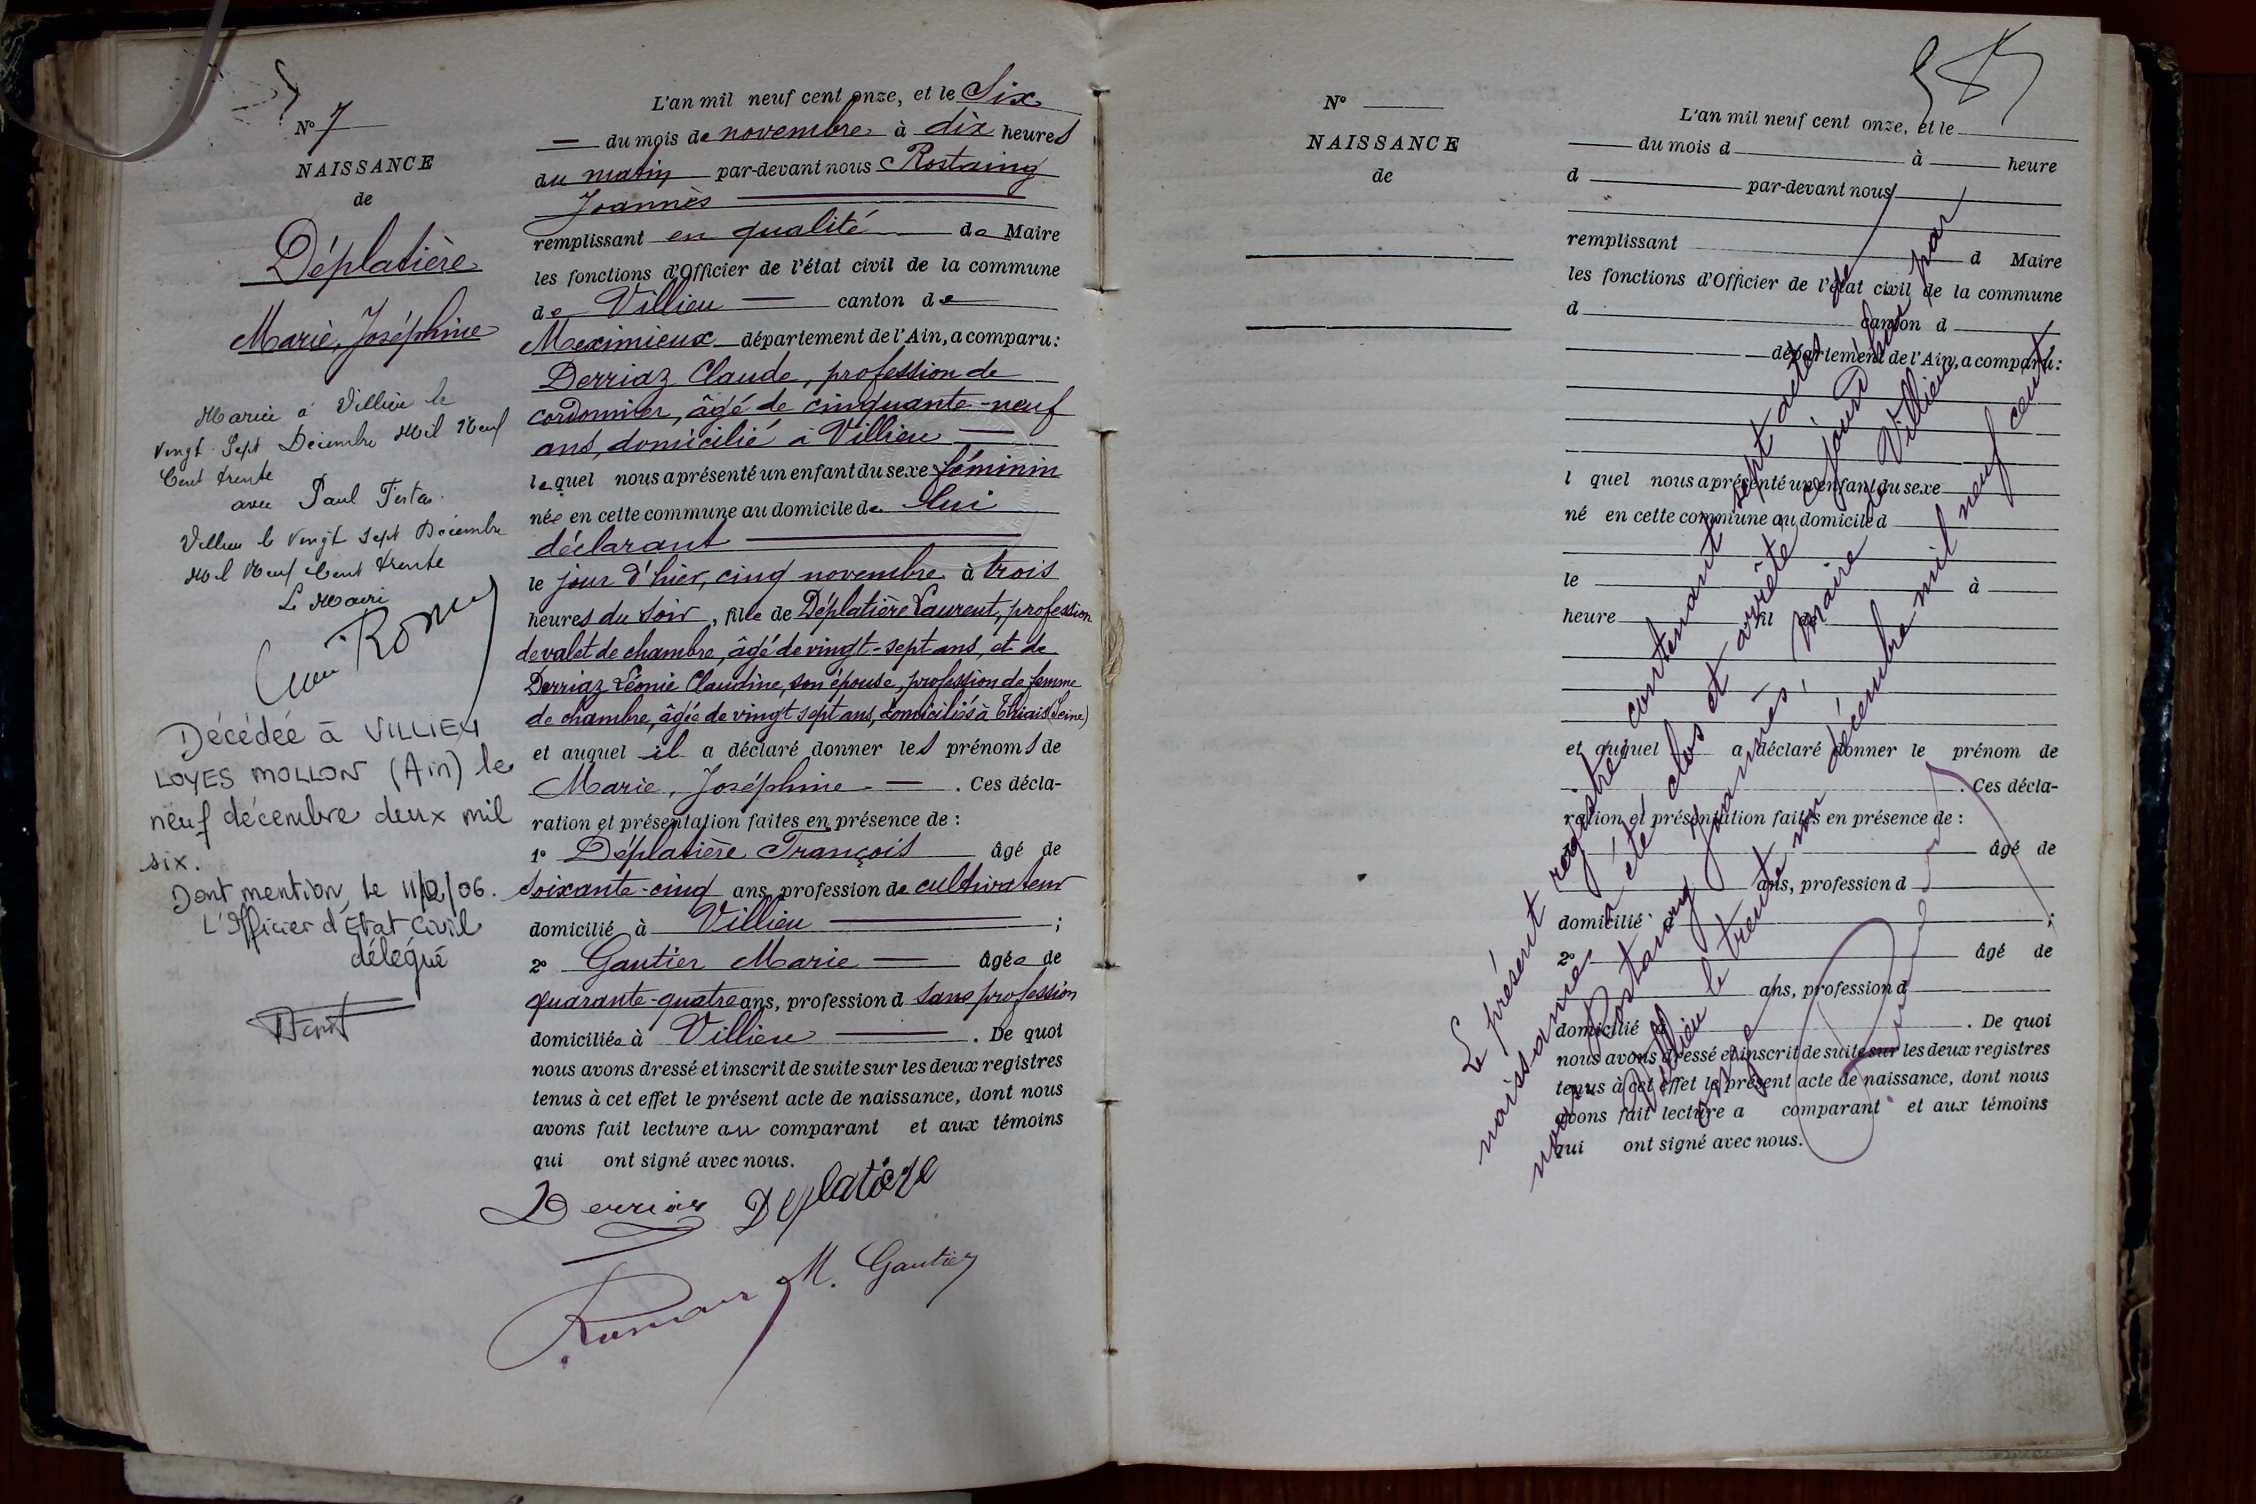 N° 7
NAISSANCE
de
Déplatière
Marie, Joséphine
Mariée à Villieu le
vingt Sept Décembre Mil Neuf
Cent trente
avec Paul
Villieu le Vingt Sept Décembre
Mil Neuf Cent trente
Le Maire
Décédée à VILLIEU
LOYES MOLLON (Ain) le
neuf décembre deux mil
six.
Dont mention, le 11/12/06.
L'Officier d'Etat Civil
délégué
L'an mil neuf cent onze, et le Six
— du mois de novembre à dix heures
du matin par-devant nous Rostaing
Joannès
remplissant en qualité de Maire
les fonctions d'Officier de l'état civil de la commune
de Villieu — canton de
Meximieux département de l'Ain, a comparu:
Derriaz Claude, profession de
cordonnier, âgé de cinquante-neuf
ans, domicilié à Villieu —
lequel nous a présenté un enfant du sexe féminin
née en cette commune au domicile de lui
déclarant
le jour d'hier, cinq novembre à trois
heures du soir, fille de Déplatière Laurent, profession
de valet de chambre, âgé de vingt-sept ans, et de
Derriaz Léonie Claudine, son épouse, profession de femme
de chambre, âgée de vingt sept ans, domiciliés à Thiais (Seine)
et auquel il a déclaré donner les prénoms de
Marie, Joséphine — . Ces décla-
ration et présentation faites en présence de :
1° Déplatière François âgé de
soixante-cinq ans, profession de cultivateur
domicilié à Villieu ;
2° Gautier Marie — âgée de
quarante-quatre ans, profession d sans profession
domiciliée à Villieu . De quoi
nous avons dressé et inscrit de suite sur les deux registres
tenus à cet effet le présent acte de naissance, dont nous
avons fait lecture au comparant et aux témoins
qui ont signé avec nous.
Derriaz Deplatière
M. Gautier
N°
NAISSANCE
de
L'an mil neuf cent onze, et le
du mois d à heure
d par-devant nous
remplissant d Maire
les fonctions d'Officier de l'état civil de la commune
d canton d
département de l'Ain, a comparu:
l quel nous a présenté un enfant du sexe
né en cette commune au domicile d
le à
heure fil de
et auquel a déclaré donner le prénom de
. Ces décla-
ration et présentation faites en présence de :
1° âgé de
ans, profession d
domicilié à ;
2° âgé de
ans, profession d
domicilié à . De quoi
nous avons dressé et inscrit de suite sur les deux registres
tenus à cet effet le présent acte de naissance, dont nous
avons fait lecture a comparant et aux témoins
qui ont signé avec nous.
Le présent registre contenant sept actes de
naissances a été clos et arrêté ce jourd'hui par
nous Rostaing Joannès, Maire de Villieu
Villieu le trente un décembre mil neuf cent
onze